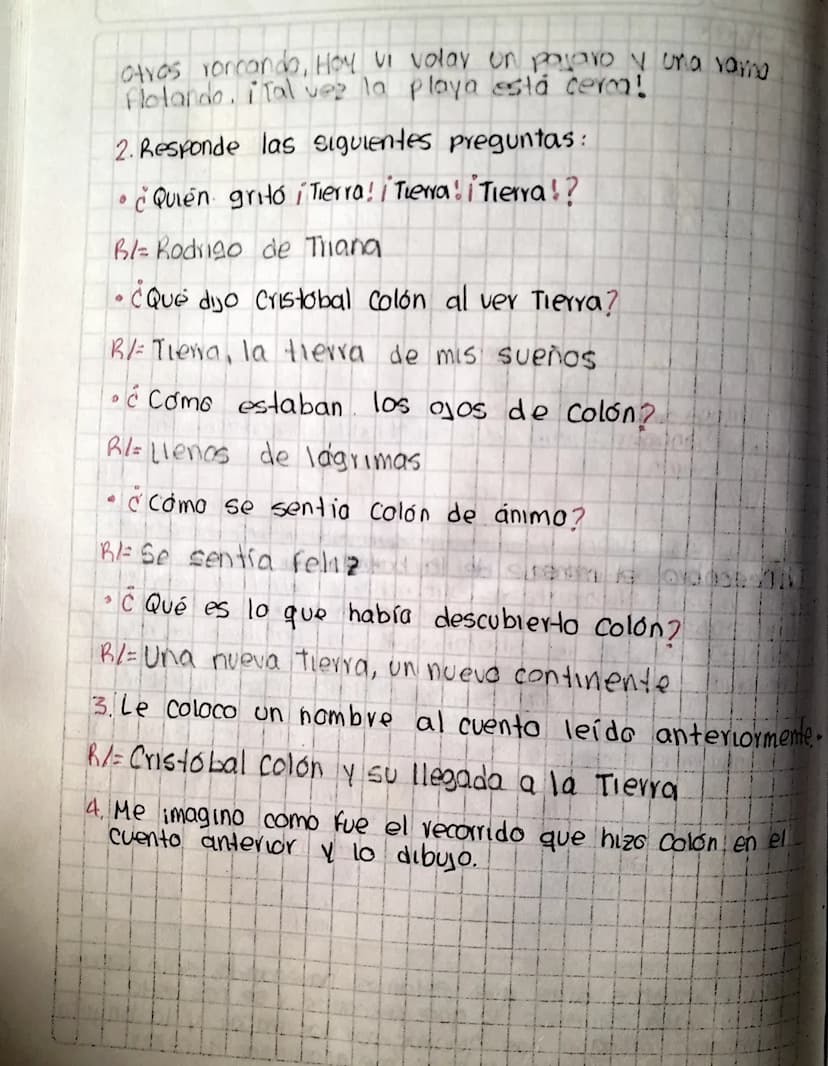 otras roncando, Hoy vi volar un pajaro y una rama
flotando. ¡Tal vez la playa está cerca!
2. Responde las siguientes preguntas:
• ¿Quién gritó ¡Tierra! ¡Tierra! ¡Tierra!?
R/= Rodrigo de Triana
• ¿Qué dijo Cristobal Colón al ver Tierra?
R/= Tierra, la tierra de mis sueños
• ¿Cómo estaban los ojos de Colón?
R/= Llenos de lágrimas
• ¿Cómo se sentia Colón de ánimo?
R/= Se sentía feliz
• ¿Qué es lo que había descubierto Colón?
R/= Una nueva tierra, un nuevo continente
3. Le coloco un nombre al cuento leído anteriormente.
R/= Cristóbal Colón y su llegada a la Tierra
4. Me imagino como fue el recorrido que hizo Colón en el
cuento anterior y lo dibujo.